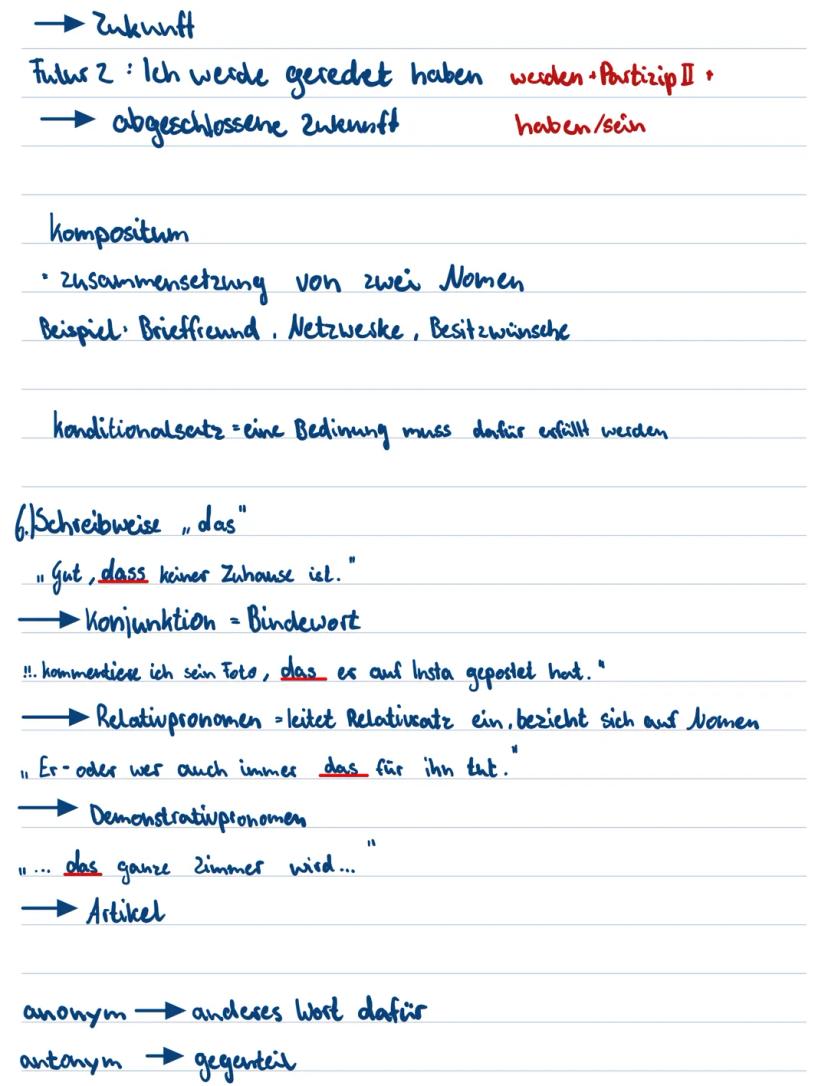 → Zukunft
Futur 2 : Ich werde geredet haben werden + Partizip II +
→ abgeschlossene Zukunft haben/sein
Kompositum
· Zusammensetzung von zwei Nomen
Beispiel: Brieffreund, Netzwerke, Besitzwünsche
Konditionalsatz = eine Bedinung muss dafür erfüllt werden
6.) Schreibweise „das"
„Gut, dass keiner Zuhause ist."
→ Konjunktion = Bindewort
„... kommentiere ich sein Foto, das er auf Insta gepostet hat."
→ Relativpronomen = leitet Relativsatz ein, bezieht sich auf Nomen
„Er - oder wer auch immer das für ihn tut."
→ Demonstrativpronomen
„... das ganze Zimmer wird..."
→ Artikel
anonym → anderes Wort dafür
antonym → gegenteil